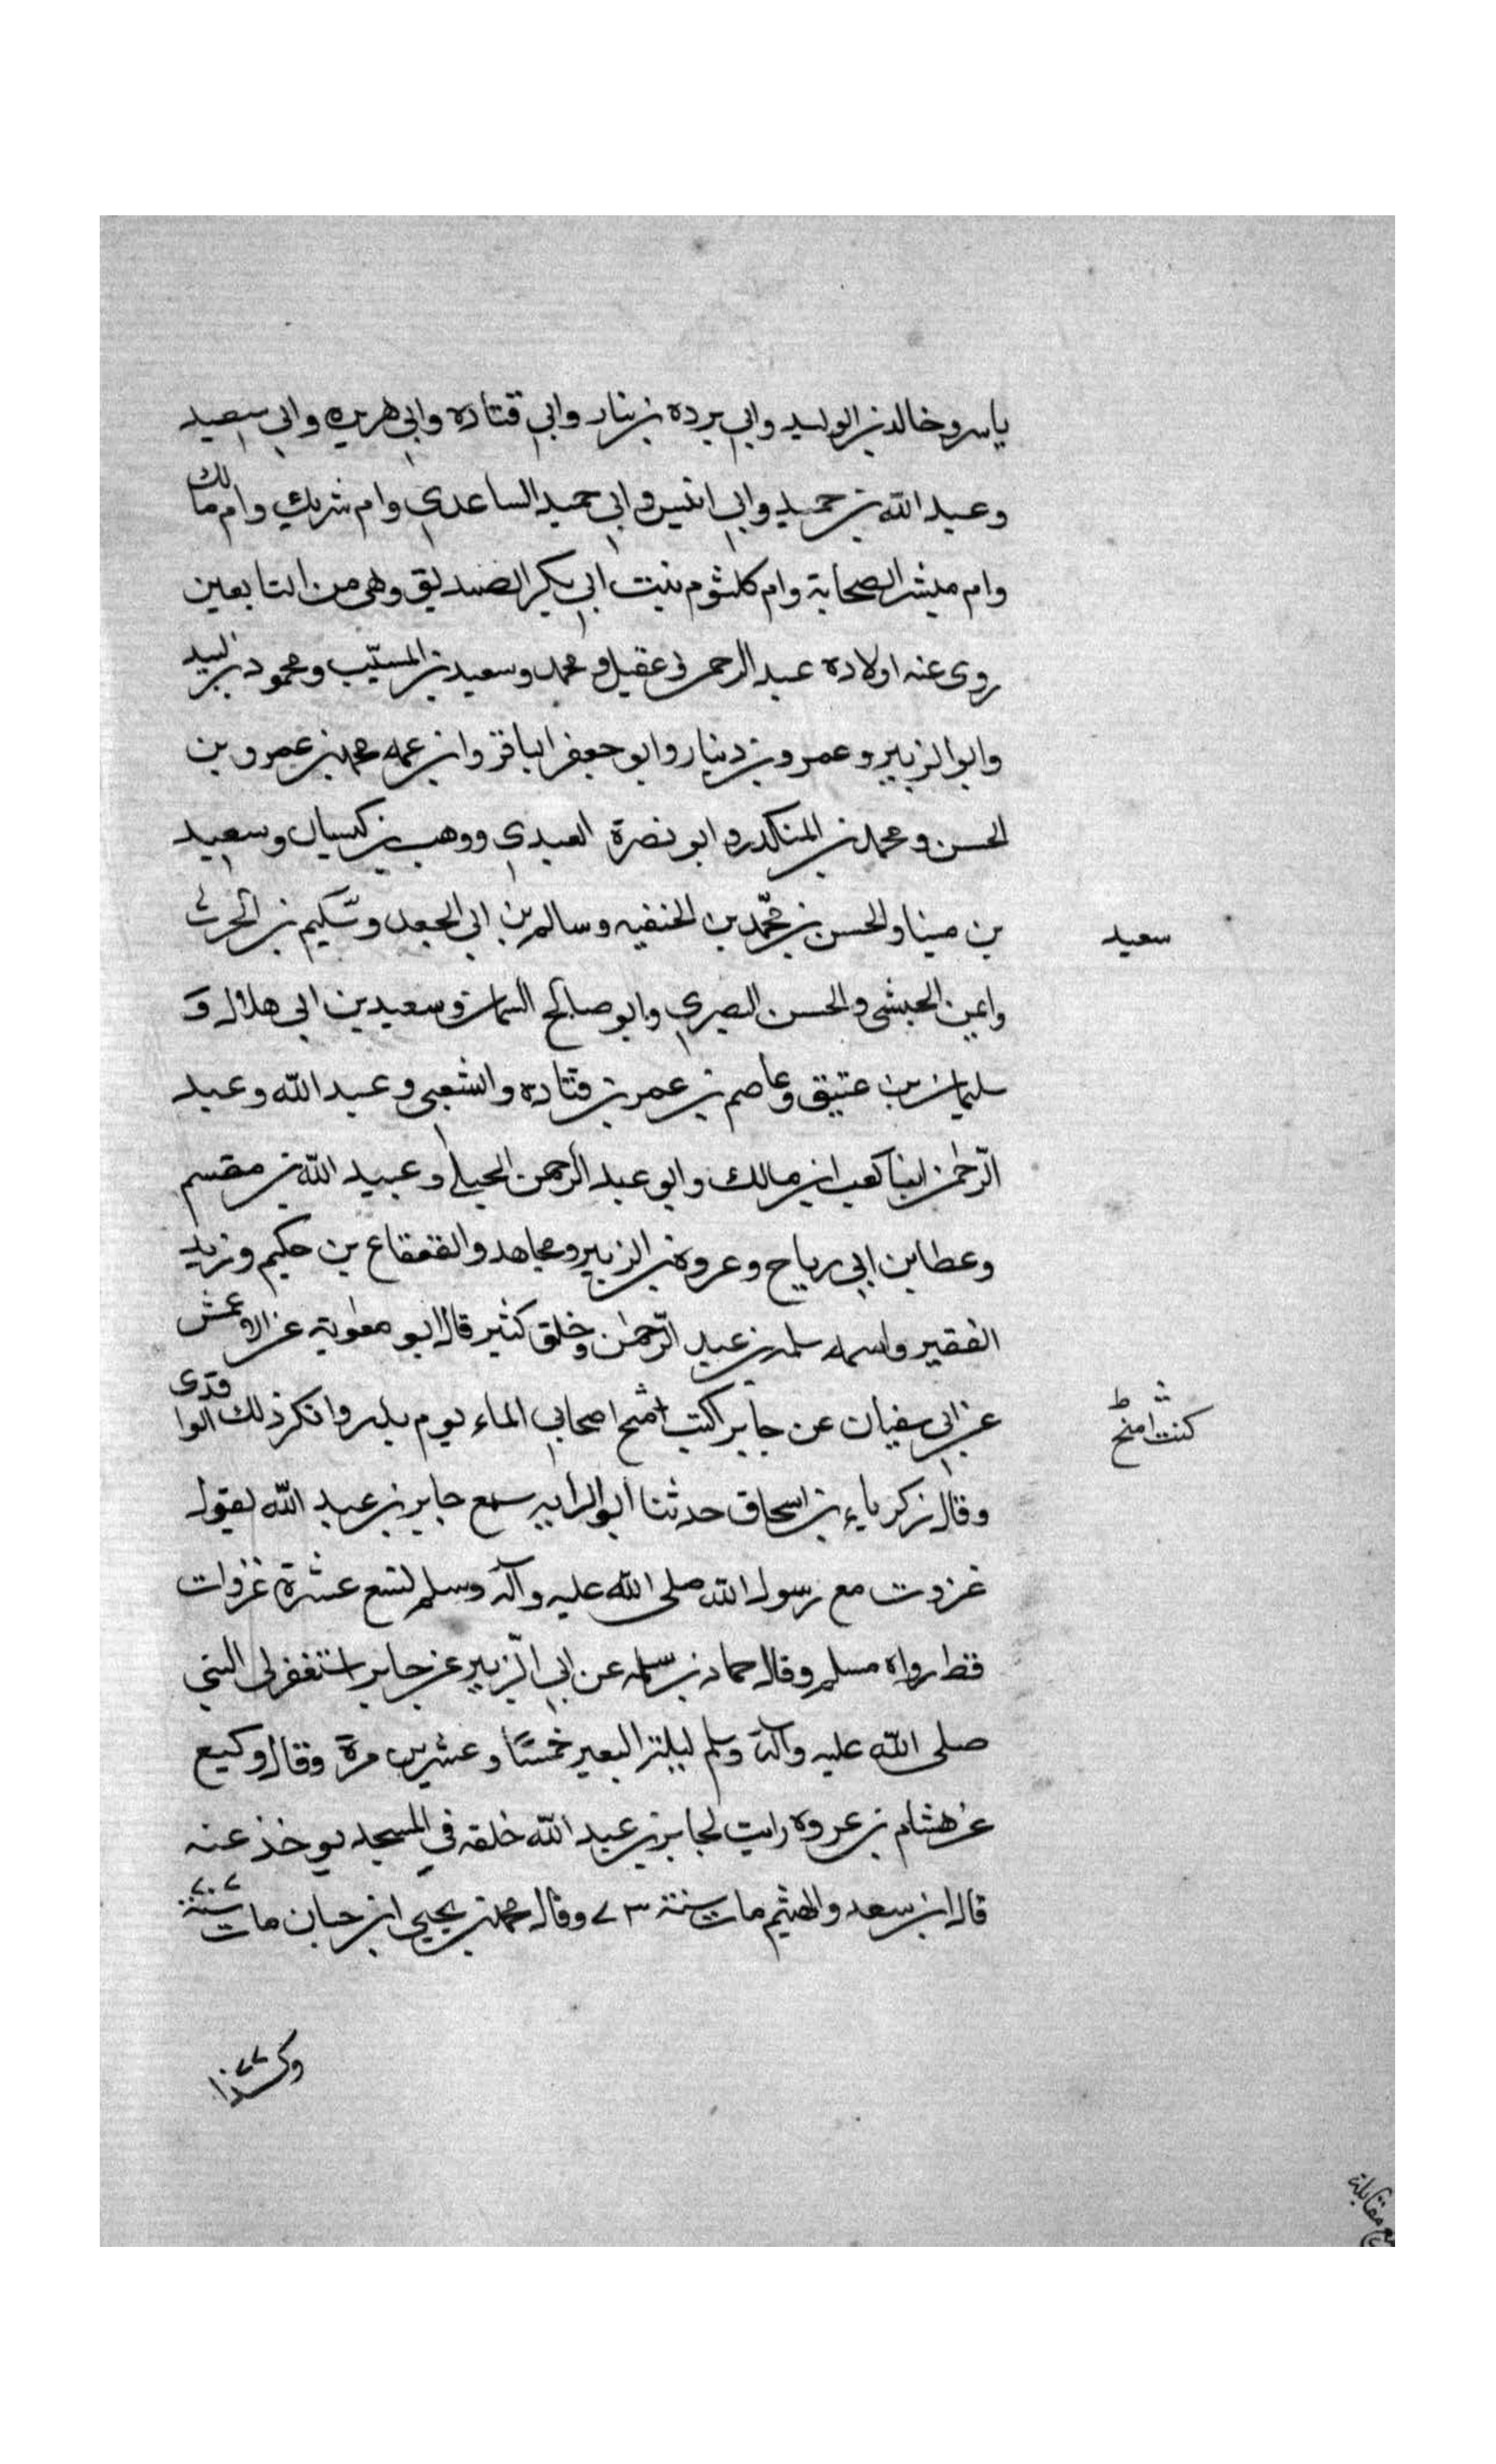 ياسر وخالد بن الوليد وابي بردة بن نيار وابي قتاده وابي هريره وابي سعيد
وعبد الله بن حميد وابي انيس وابي حميد الساعدي وام شريك وام مالك
وام مبشر الصحابة وام كلثوم بنت ابي بكر الصديق وهي من التابعين
روى عنه اولاده عبد الرحمن وعقيل ومحمد وسعيد بن المسيّب ومحمود بن لبيد
وابو الزبير وعمرو بن دينار وابو جعفر الباقر وابن عمه محمد بن عمرو بن
الحسن ومحمد بن المنكدر وابو نضرة العبدي ووهب بن كيسان وسعيد
بن مينا والحسن بن محمّد بن الحنفيه وسالم بن ابي الجعد وسليم بن الحرث
سعيد
وايمن الحبشي والحسن البصري وابو صالح السمان وسعيد بن ابي هلال و
سليمان بن عتيق وعاصم بن عمر بن قتاده والشعبي وعبد الله وعبد
الرّحمٰن ابنا كعب ابن مالك وابو عبد الرحمن الحبلي وعبيد الله بن مقسم
وعطا بن ابي رباح وعروة بن الزبير ومجاهد والقعقاع بن حكيم ويزيد
الفقير واسمه سلمه بن عبد الرّحمٰن وخلق كثير قال ابو معٰوية عن الاعمش
عن ابي سفيان عن جابر كنت امنح اصحابي الماء يوم بدر وانكر ذلك الواقدى
كنت امنح
وقال زكرياء بن اسحاق حدثنا ابو الزبير سمع جابر بن عبد الله يقول
غزوت مع رسول الله صلى الله عليه وآله وسلم تسع عشرة غزوات
قط رواه مسلم وقال حماد بن سلمه عن ابي الزّبير عن جابر استغفر لي النبي
صلى الله عليه وآله وسلم ليلة البعير خمسًا وعشرين مرة وقال وكيع
عن هشام بن عروه رايت لجابر بن عبد الله حلقه في المسجد يوخذ عنه
قال ابن سعد والهيثم مات سنة ٧٣ وقال محمد بن يحيى ابن حبان مات سنة ٧٧
وكذا
مقابلة